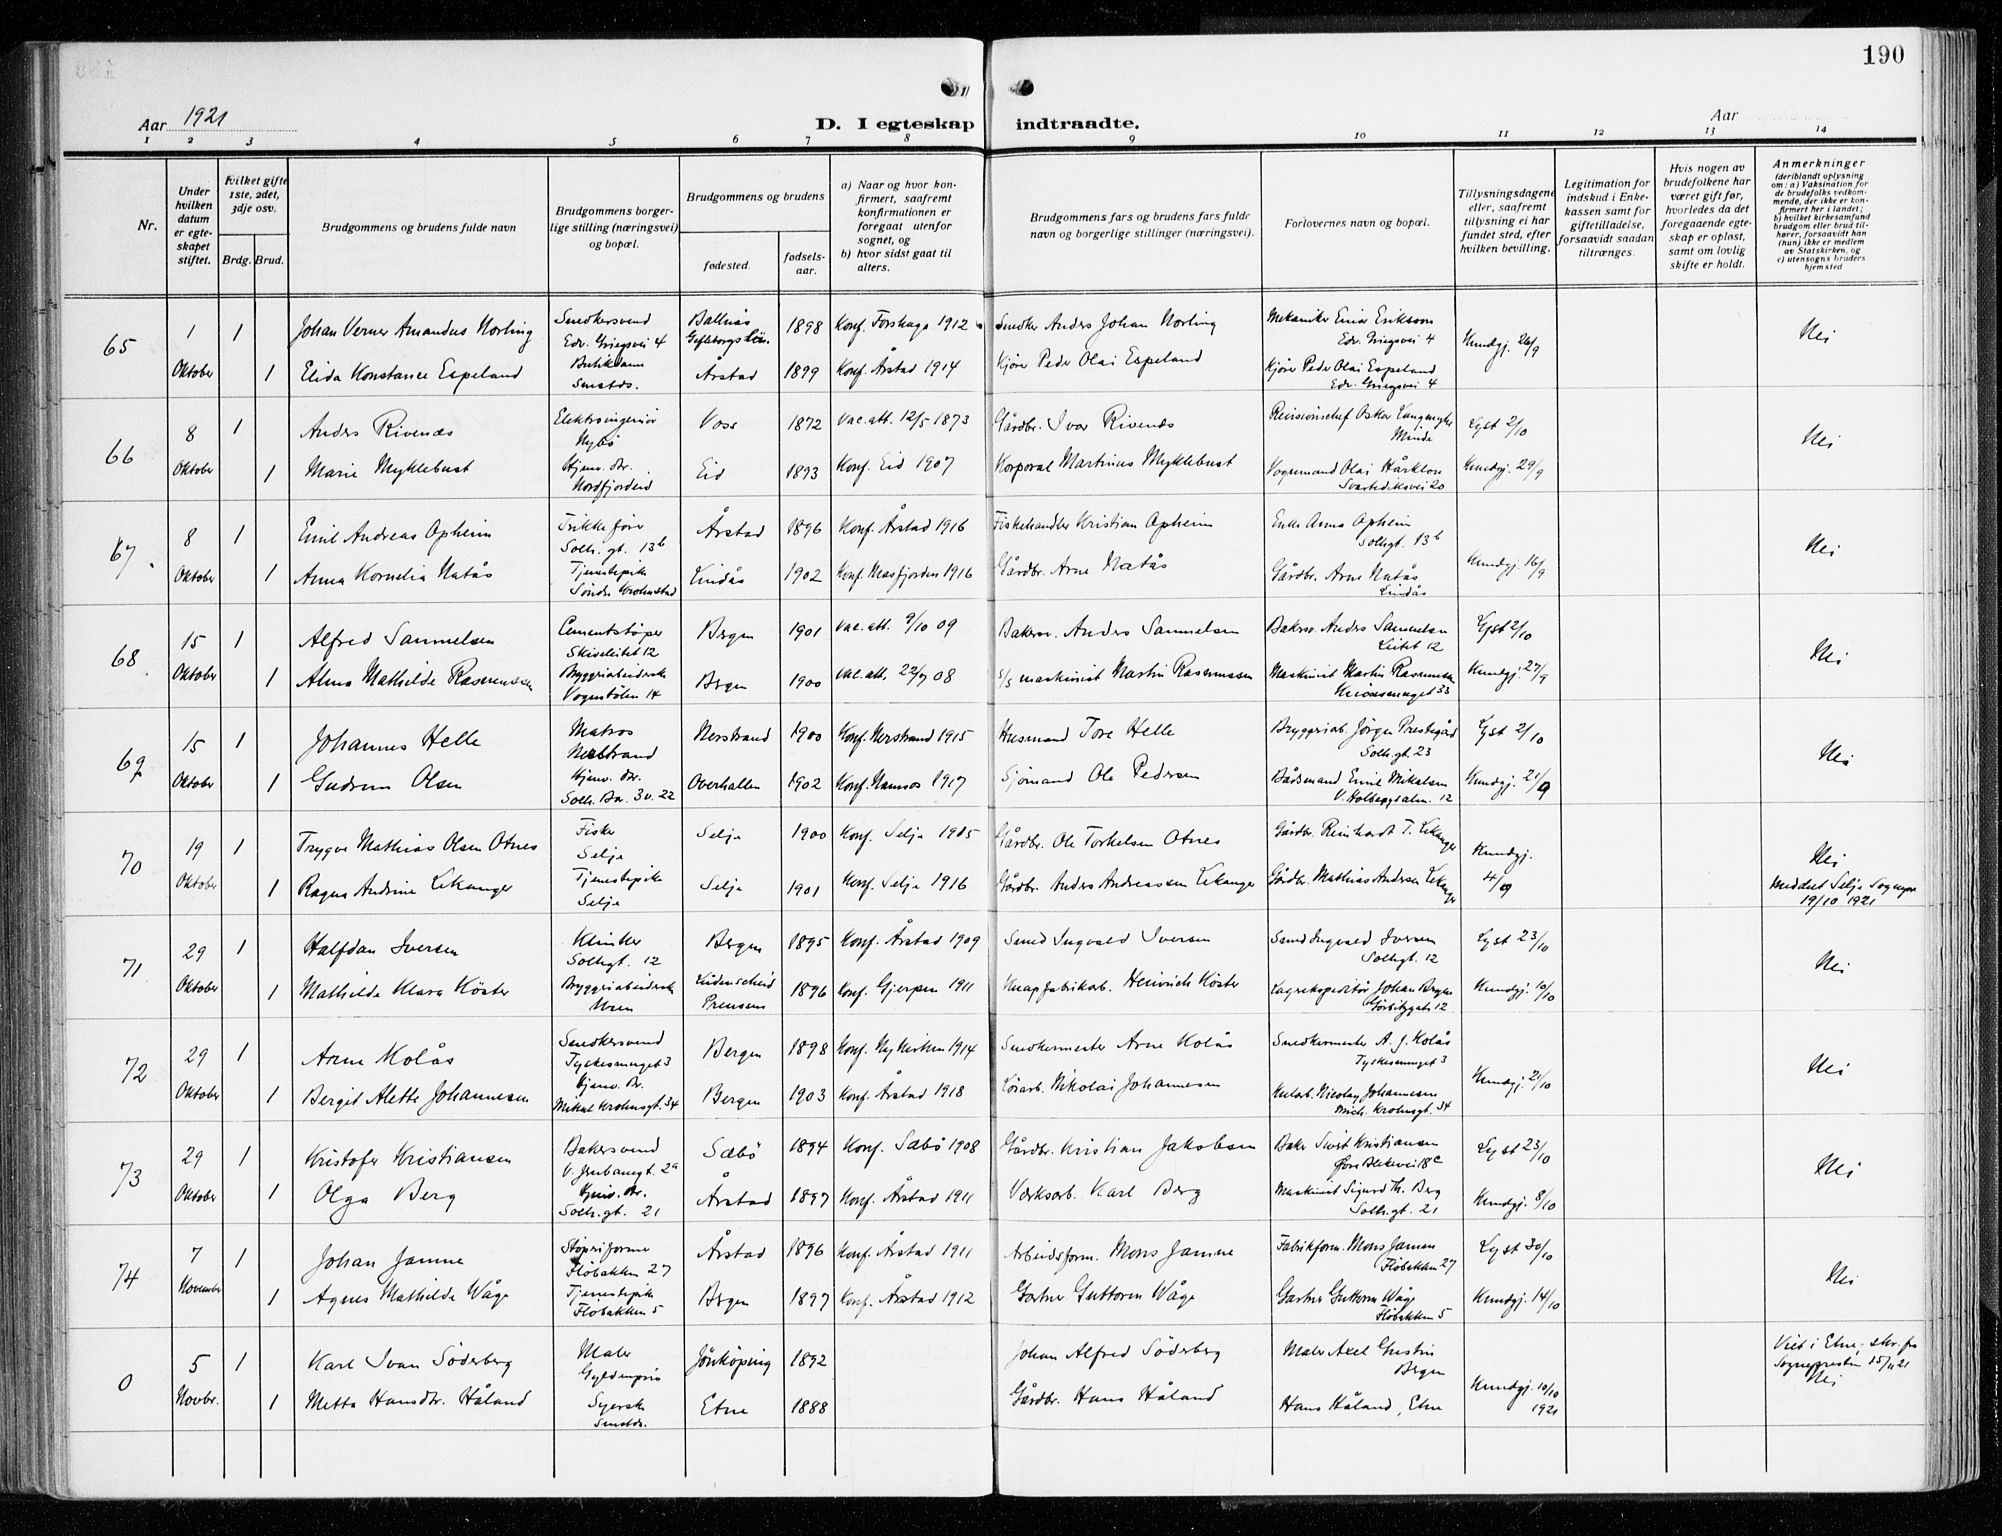 190
Aar 1921
D. I egteskap indtraadte.
Aar
1 2 3 4 5 6 7 8 9 10 11 12 13 14
Nr.
Under hvilken datum er egteskapet stiftet.
Hvilket gifte 1ste, 2det, 3dje osv.
Brdg. Brud.
Brudgommens og brudens fulde navn
Brudgommens borgerlige stilling (næringsvei) og bopæl.
Brudgommens og brudens
fødested. fødselsaar.
a) Naar og hvor konfirmert, saafremt konfirmationen er foregaat utenfor sognet, og
b) hvor sidst gaat til alters.
Brudgommens fars og brudens fars fulde navn og borgerlige stillinger (næringsvei).
Forlovernes navn og bopæl.
Tillysningsdagene eller, saafremt tillysning ei har fundet sted, efter hvilken bevilling.
Legitimation for indskud i Enkekassen samt for giftetilladelse, forsaavidt saadan tiltrænges.
Hvis nogen av brudefolkene har været gift før, hvorledes da det foregaaende egteskap er opløst, samt om lovlig skifte er holdt.
Anmerkninger (deriblandt oplysning om: a) Vaksination for de brudefolks vedkommende, der ikke er konfirmert her i landet; b) hvilket kirkesamfund brudgom eller brud tilhører, forsaavidt han (hun) ikke er medlem av Statskirken, og c) utensogns bruders hjemsted
65 1 Oktober 1 Johan Verner Amandus Norling Snedkersvend Edv. Griegsvei 4 Bollnäs Gefleborgs län. 1898 Konf. Forshaga 1912 Snedker Anders Johan Norling Mekaniker Einar Erikson Edv. Griegsvei 4 Kundgj. 26/9 Nei
1 Elida Konstance Espeland Butikdame Smstds. Årstad 1899 Konf. Årstad 1914 Kjører Peder Olai Espeland Kjører Peder Olai Espeland Edv. Griegsvei 4
66 8 Oktober 1 Anders Rivenæs Elektroingeniør Nybø Voss 1872 vac.att. 12/5 1873 Gårdbr. Ivar Rivenæs Revisionschef Oskar Langmyhr Minde Lyst 2/10 Nei
1 Marie Myklebust Hjemv. dtr. Nordfjordeid Eid 1893 Konf. Eid 1907 Korporal Martinus Myklebust Vognmand Olai Hårklou Svartediksvei 20 Kundgj. 29/9
67 8 Oktober 1 Emil Andreas Opheim Trikkefører Solh. gt. 13b Årstad 1896 Konf. Årstad 1916 Fiskehandler Kristian Opheim Enke Anna Opheim Solhgt. 13b Nei
1 Anna Kornelia Natås Tjenestepike Søndre Krohnstad Lindås 1902 Konf. Masfjorden 1916 Gårdbr. Arne Natås Gårdbr. Arne Natås Lindås Kundgj. 16/9
68 15 Oktober 1 Alfred Samuelsen Cementstøper Skiveleitet 12 Bergen 1901 vac. att. 9/10 09 Bakersv. Anders Samuelsen Bakersv. Anders Samuelsen Leitet 12 Lyst 2/10 Nei
1 Alma Mathilde Rasmussen Bryggeriarbeiderske Vognstølen 14 Bergen 1900 vac. att. 08 S/S maskinist Martin Rasmussen Maskinist Martin Rasmussen 33 Kundgj. 27/9
69 15 Oktober 1 Johannes Helle Matros Nerstrand Nerstrand 1900 Konf. Nerstrand 1915 Husmand Tore Helle Bryggeriarb. Jörgen Prestegård Solh.gt. 23 Lyst 2/10 Nei
1 Gudrun Olsen Hjemv. dtr. Solh. Bar. 3 v. 22 Overhallen 1902 Konf. Namsos 1917 Sjömand Ole Pedersen Bådsmand Emil Mikalsen V. Holbergsalm. 12 Kundgj. 21/9
70 19 Oktober 1 Trygve Mathias Olsen Otnes Fisker Selje Selje 1900 Konf. Selje 1915 Gårdbr. Ole Torkelsen Otnes Gårdbr. Reinhardt T. Lekanger Kundgj. 4/9 Nei
1 Ragna Andrine Lekanger Tjenestepike Selje Selje 1901 Konf. Selje 1916 Gårdbr. Anders Andreassen Lekanger Gårdbr. Mathias Andersen Lekanger Meddelt Selje Sognepr. 19/10 1921
71 29 Oktober 1 Halfdan Iversen Klinker Solhgt. 12 Bergen 1895 Konf. Årstad 1909 Smed Ingvald Iversen Smed Ingvald Iversen Solhgt. 12 Lyst 23/10 Nei
1 Mathilde Klara Köster Bryggeriarbeiderske Uren Lüdenscheid Preussen 1896 Konf. Gjerpen 1911 Knapfabrikarb. Heinrich Köster Lagrekspeditör Johan Bergen 12 Kundgj. 10/10
72 29 Oktober 1 Arne Kolås Snedkersvend Tyskesmuget 3 Bergen 1898 Konf. Nykirken 1914 Snedkermester Arne Kolås Snedkermester A. J. Kolås Tyskesmuget 3 Kundgj. 21/10 Nei
1 Bergit Alette Johannesen Hjemv. Dr. Mikal Krohnsgt. 34 Bergen 1903 Konf. Årstad 1918 Løsarb. Nikolai Johannesen Kularb. Nicolay Johannesen Mich. Krohnsgt. 34
73 29 Oktober 1 Kristofer Kristiansen Bakersvend V. Jrnbanegt. 2a Sæbö 1894 Konf. Sæbö 1908 Gårdbr. Kristian Jakobsen Baker Sivert Kristiansen Øvre Blekevei 18c Lyst 23/10 Nei
1 Olga Berg Hjemv. dtr. Solh.gt. 21 Årstad 1897 Konf. Årstad 1911 Verksarb. Karl Berg Maskinist Sigurd Th. Berg Solh.gt. 21 Kundgj. 8/10
74 7 November 1 Johan Jamne Støperiformer Fløbakken 27 Årstad 1896 Konf. Årstad 1911 Arbeidsform. Mons Jamne Fabrikform. Mons Jamne Fløbakken 27 Lyst 30/10 Nei
1 Agnes Mathilde Våge Tjenestepike Fløbakken 5 Bergen 1897 Konf. Årstad 1912 Gartner Guttorm Våge Gartner Guttorm Våge Fløbakken 5 Kundgj. 14/10
0 5 Novbr. 1 Karl Ivan Söderberg Maler Gyldenpris Jönköping 1892 Johan Alfred Söderberg Maler Axel Gustin Bergen Viet i Etne, skr. fra Sognepresten 15/11 21 Nei
1 Metta Hansdtr. Håland Syerske Smstds. Etne 1888 Gårdbr. Hans Håland Hans Håland, Etne Kundgj. 10/10 1921